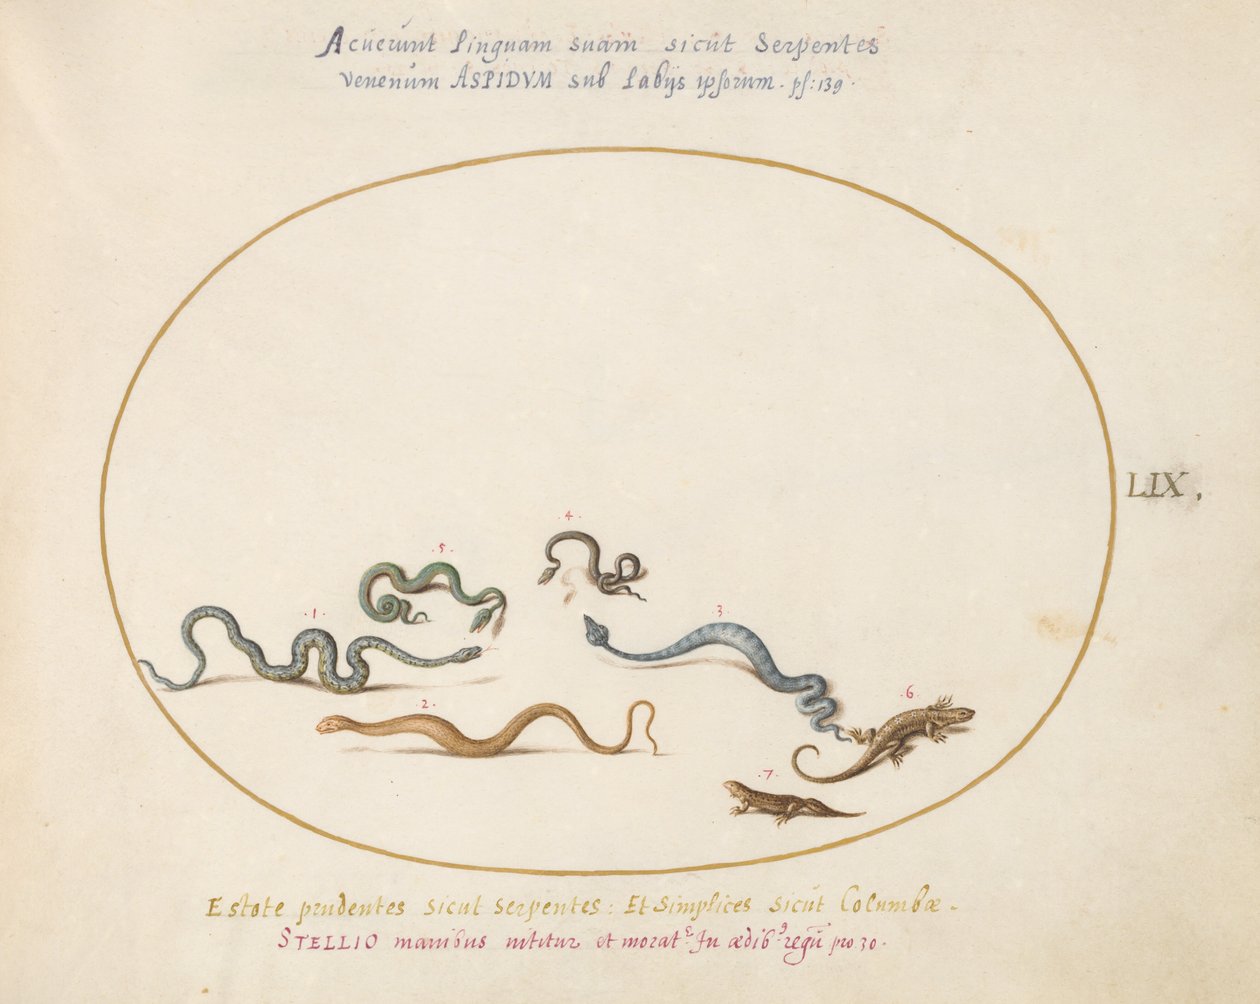 Acuerunt linguam suam sicut Serpentes
venenum ASPIDVM sub labijs ipsorum. ps: 139.
LIX,
.5.
.4.
.1.
3.
2.
6.
.7.
Estote prudentes sicut serpentes: Et Simplices sicut Columbæ.
STELLIO manibus nititur et morat^r. In ædib^9 regū pro 30.